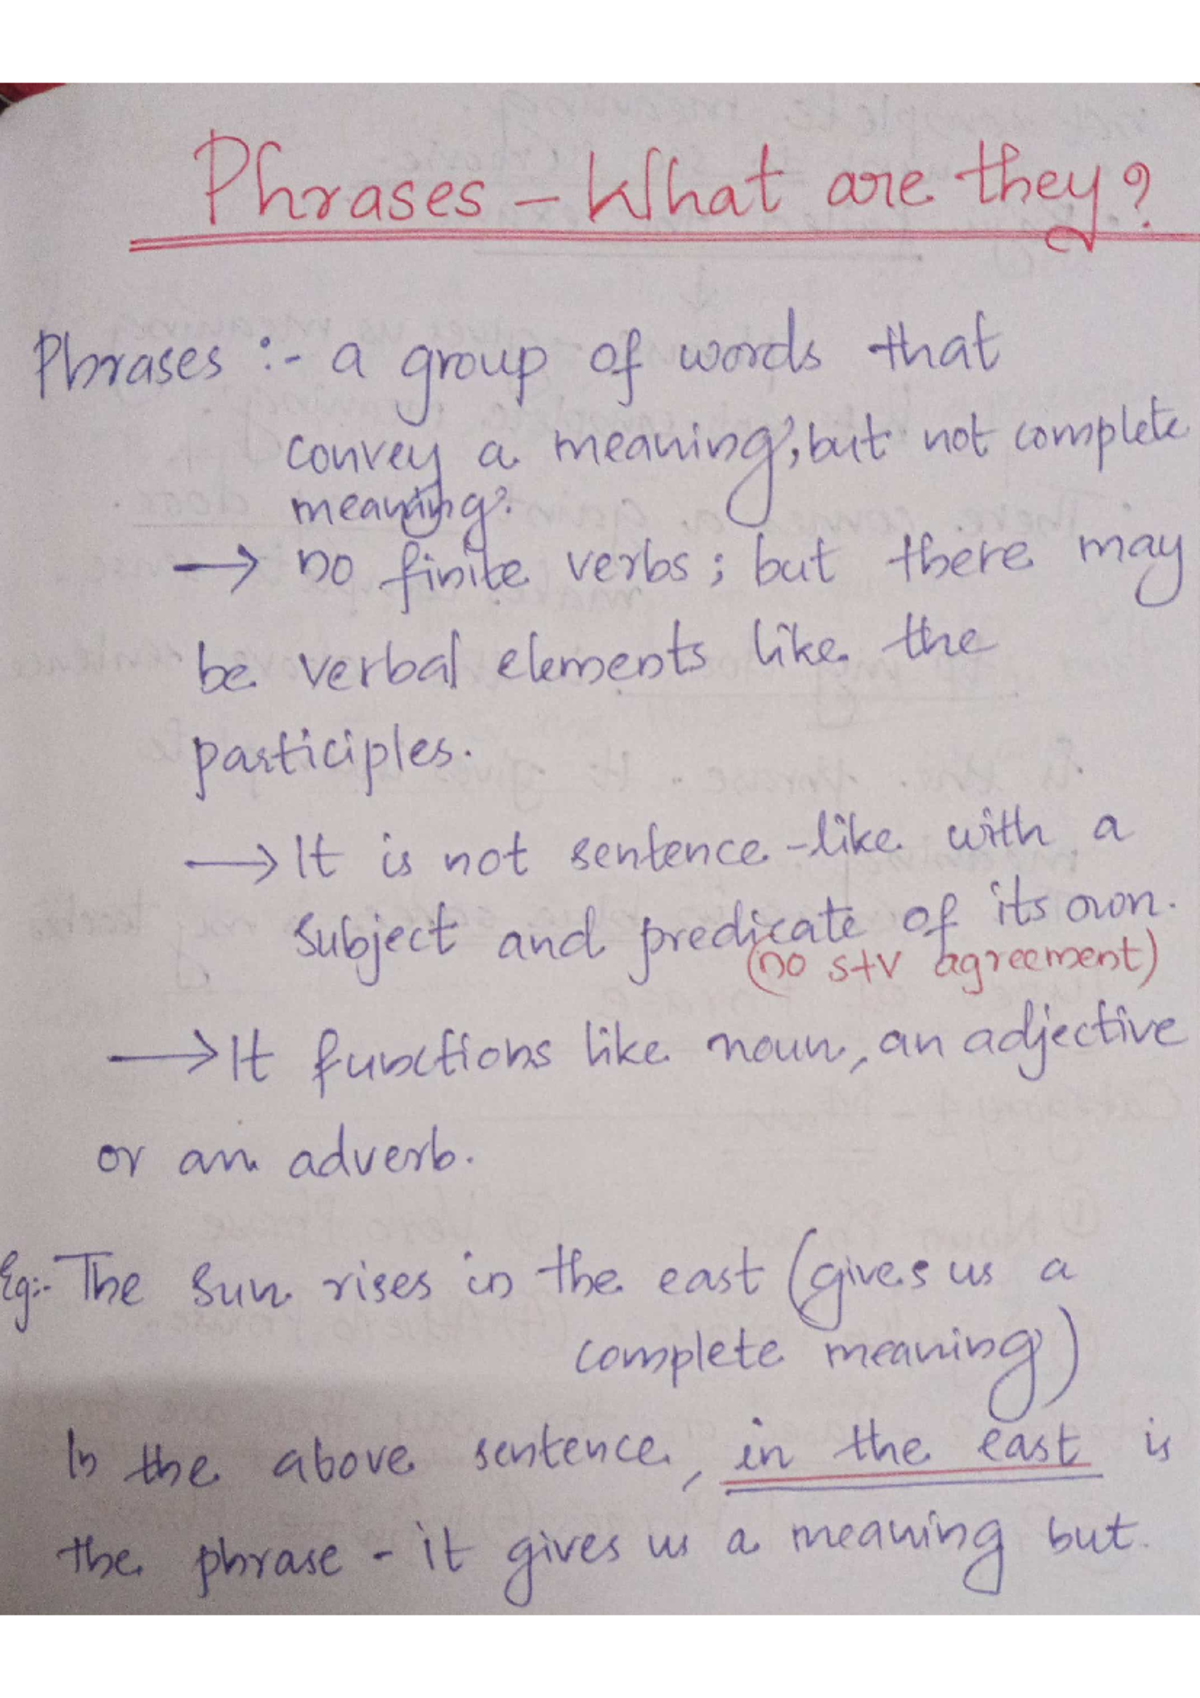 Phrases – What are they?
Phrases :- a group of words that
convey a meaning, but not complete
meaning.
→ no finite verbs ; but there may
be verbal elements like the
participles.
→ It is not sentence-like with a
subject and predicate of its own.
(no s+v agreement)
→ It functions like noun, an adjective
or an adverb.
Eg:- The sun rises in the east (gives us a
complete meaning)
In the above sentence, in the east is
the phrase - it gives us a meaning but